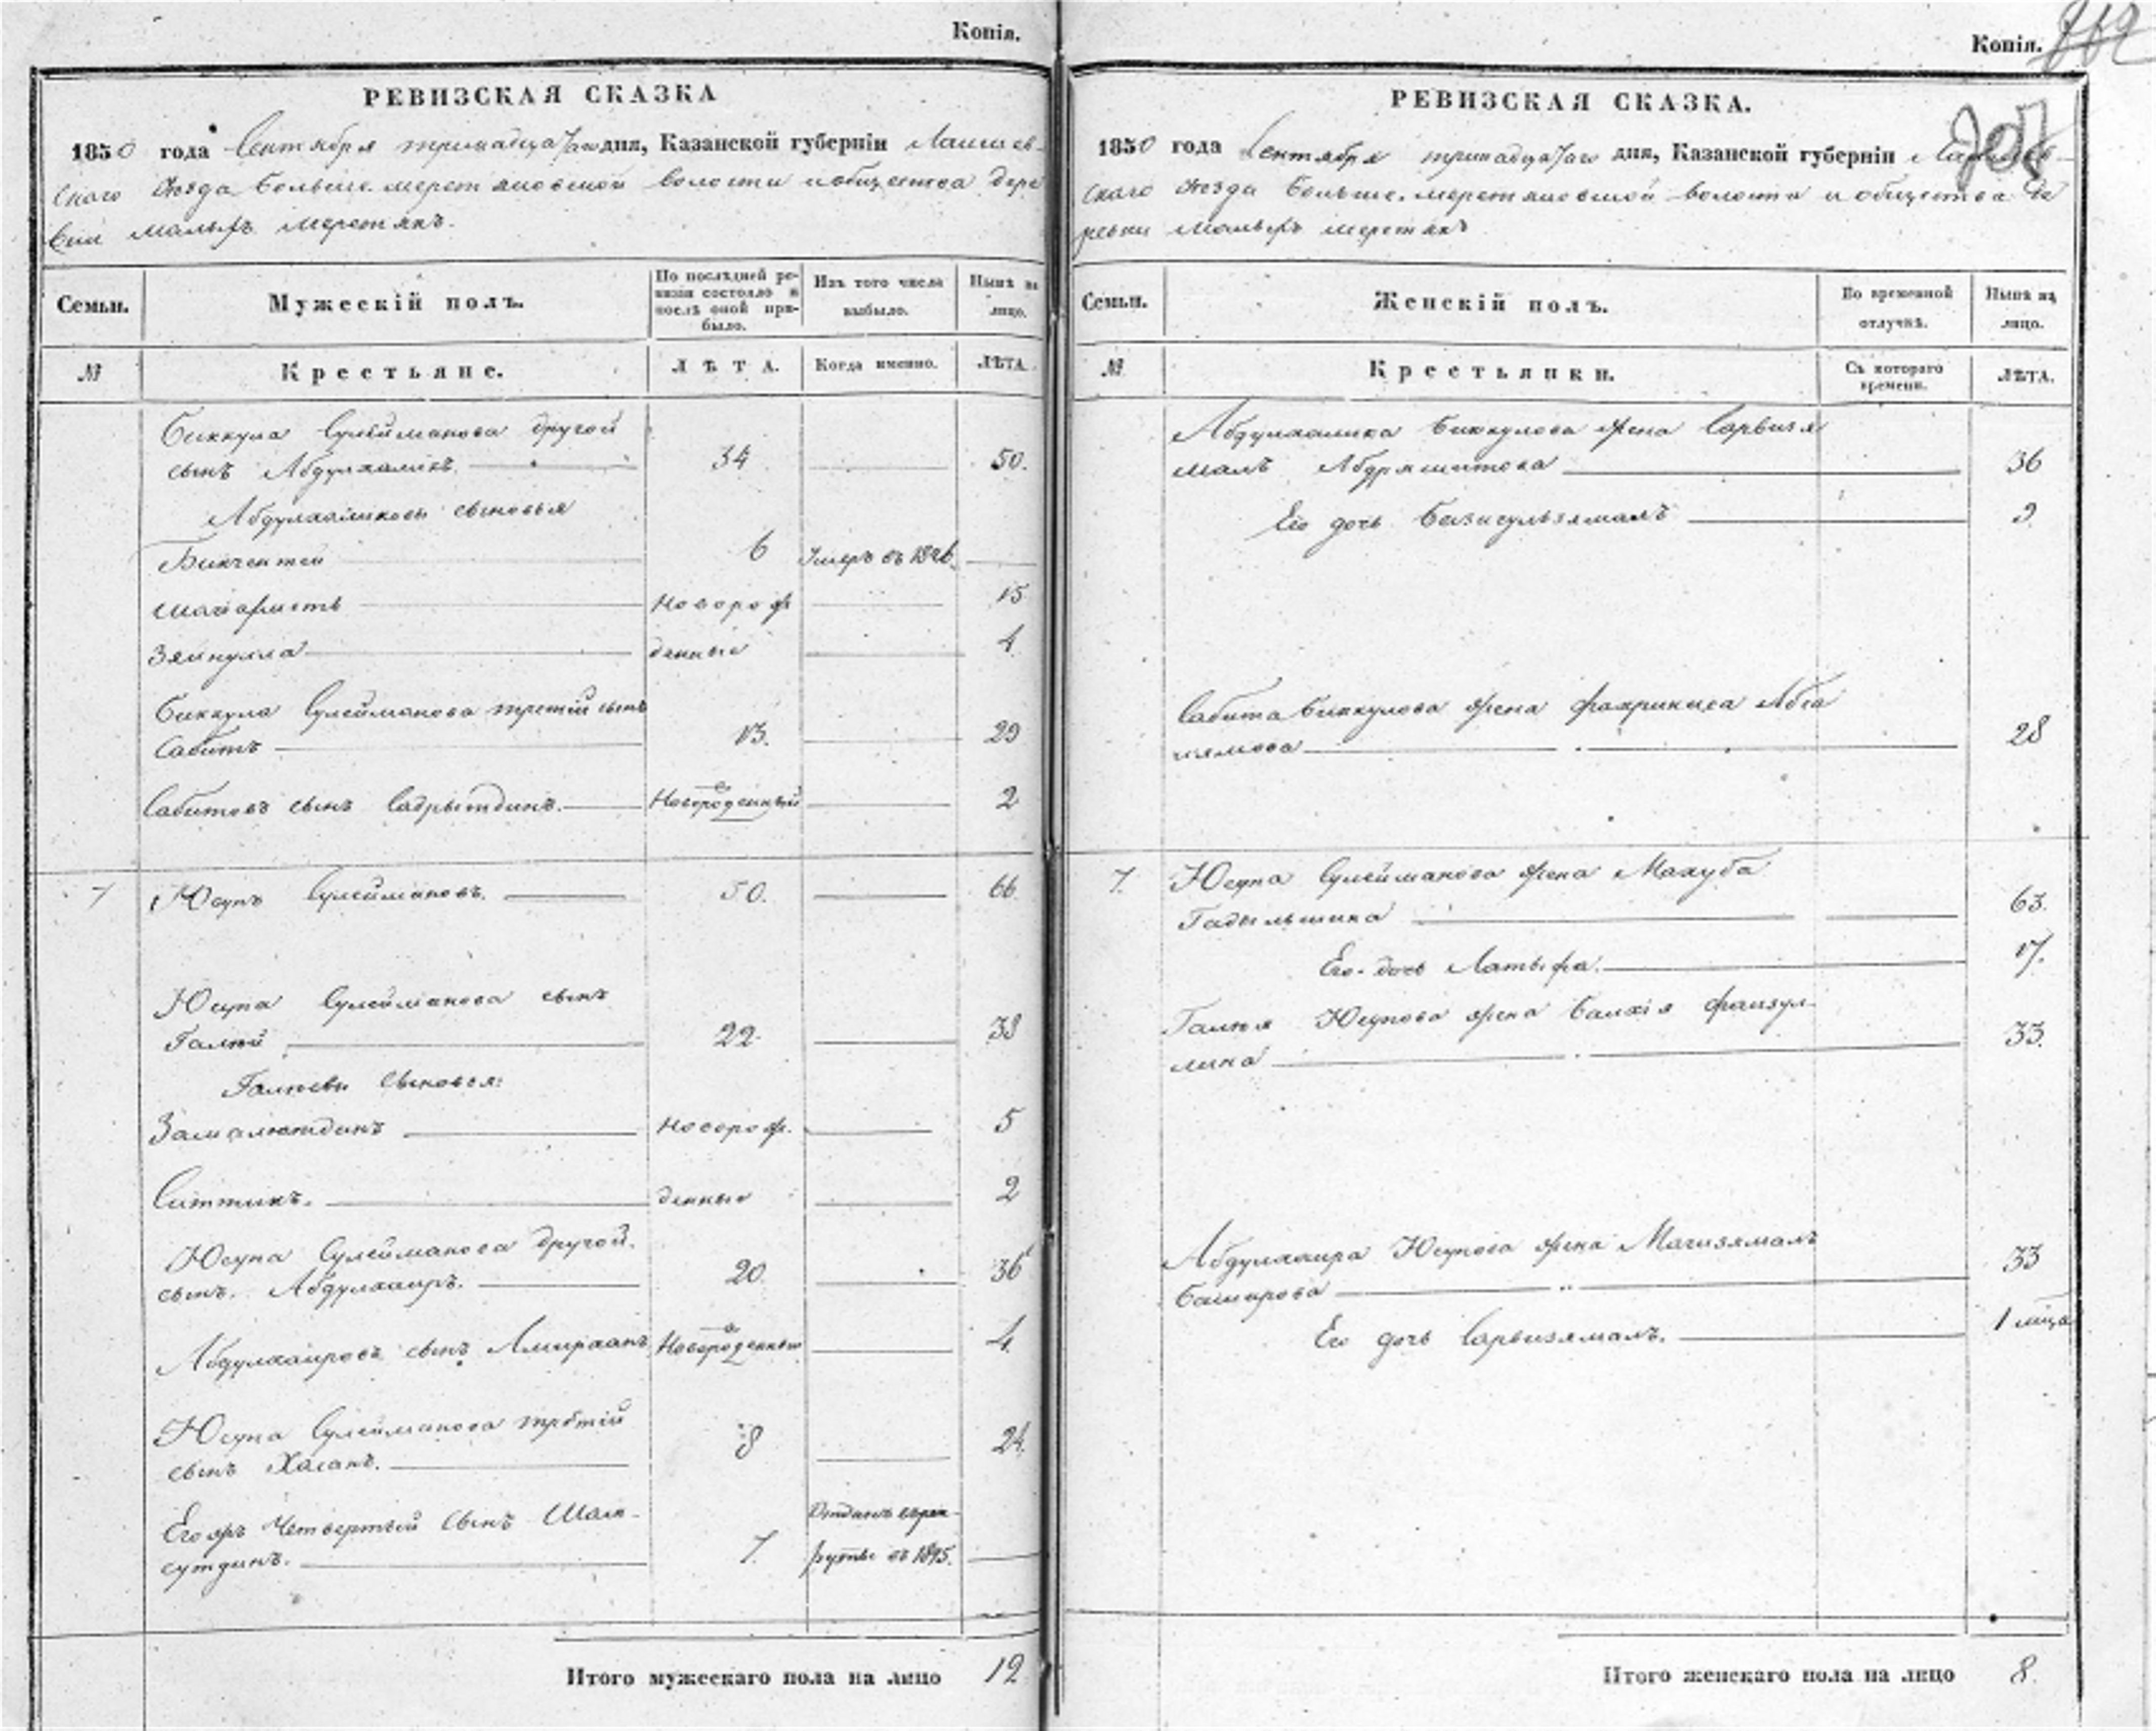 Копія.
РЕВИЗСКАЯ СКАЗКА
1850 года Сентября тринадцатаго дня, Казанской губерніи Лаишев-
скаго уѣзда Больше-меретяковской волости и общества дере
вни малыхъ меретякъ.
Семьи. Мужескій полъ. По послѣдней ре-визіи состояло и послѣ оной при-было. Изъ того числа выбыло. Нынѣ на лицо.
№ Крестьяне. ЛѢТА. Когда именно. ЛѢТА.
Биккула Сулейманова другой
сынъ Абдулхаликъ. 34 50.
Абдулхаликовы сыновья
Бикчентей 6 Умеръ въ 1846.
Новорож 15
Зяйнулла денные 4
Биккула Сулейманова третій сынъ
Сабитъ 13. 29
Сабитовъ сынъ Садрытдинъ. Новорожденный 2
7 Юсупъ Сулеймановъ. 50. 66
Юсупа Сулейманова сынъ
Галѣй 22. 38
Галѣевы сыновья:
Замалютдинъ Новорож. 5
Ситтикъ. денные 2
Юсупа Сулейманова другой.
сынъ. Абдулхаиръ. 20 36
Абдулхаировъ сынъ Амирханъ Новорожденный 4
Юсупа Сулейманова третій
сынъ Хасанъ. 8 24.
Его жъ Четвертый сынъ Шам- Отданъ въ рек-
сутдинъ. 7. руты въ 1845.
Итого мужескаго пола на лицо 12
Копія. 762
707
РЕВИЗСКАЯ СКАЗКА.
1850 года Сентября тринадцатаго дня, Казанской губерніи Лаишев-
скаго уѣзда Больше-меретяковской волости и общества де
ревни Малыхъ меретякъ
Семьи. Женскій полъ. Во временной отлучкѣ. Нынѣ на лицо.
№ Крестьянки. Съ котораго времени. ЛѢТА.
Абдулхалика Биккулова жена Сарвизя
малъ Абдряшитова 36
Его дочь Бизигульзямалъ 9
Сабита Биккулова жена Фахриниса Абга
нямова 28
7. Юсупа Сулейманова жена Махуба
Гадыльшина 63.
Его дочь Латыфа. 17.
Галѣя Юсупова жена Балхія Фаизул-
лина 33.
Абдулхаира Юсупова жена Магизямалъ
Баширова 33
Его дочь Сарвизямалъ. 1 мѣся
Итого женскаго пола на лицо 8.